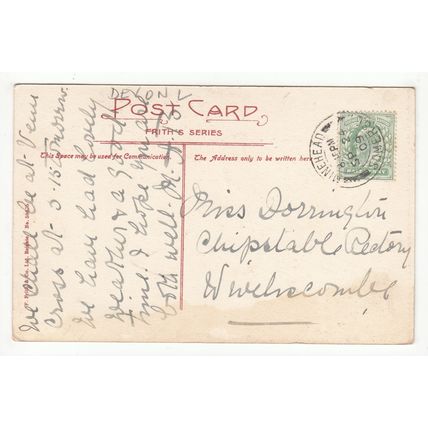 DEVON
POST CARD
FRITH'S SERIES
This Space may be used for Communication.
The Address only to be written here
MINEHEAD
SOMERSET
We shall be at Venn
Cross at 3.15 Tomorrow.
We have had lovely
weather & a good
time. I hope you are
both well
Miss Dorrington
Chipstable Rectory
Wiveliscombe